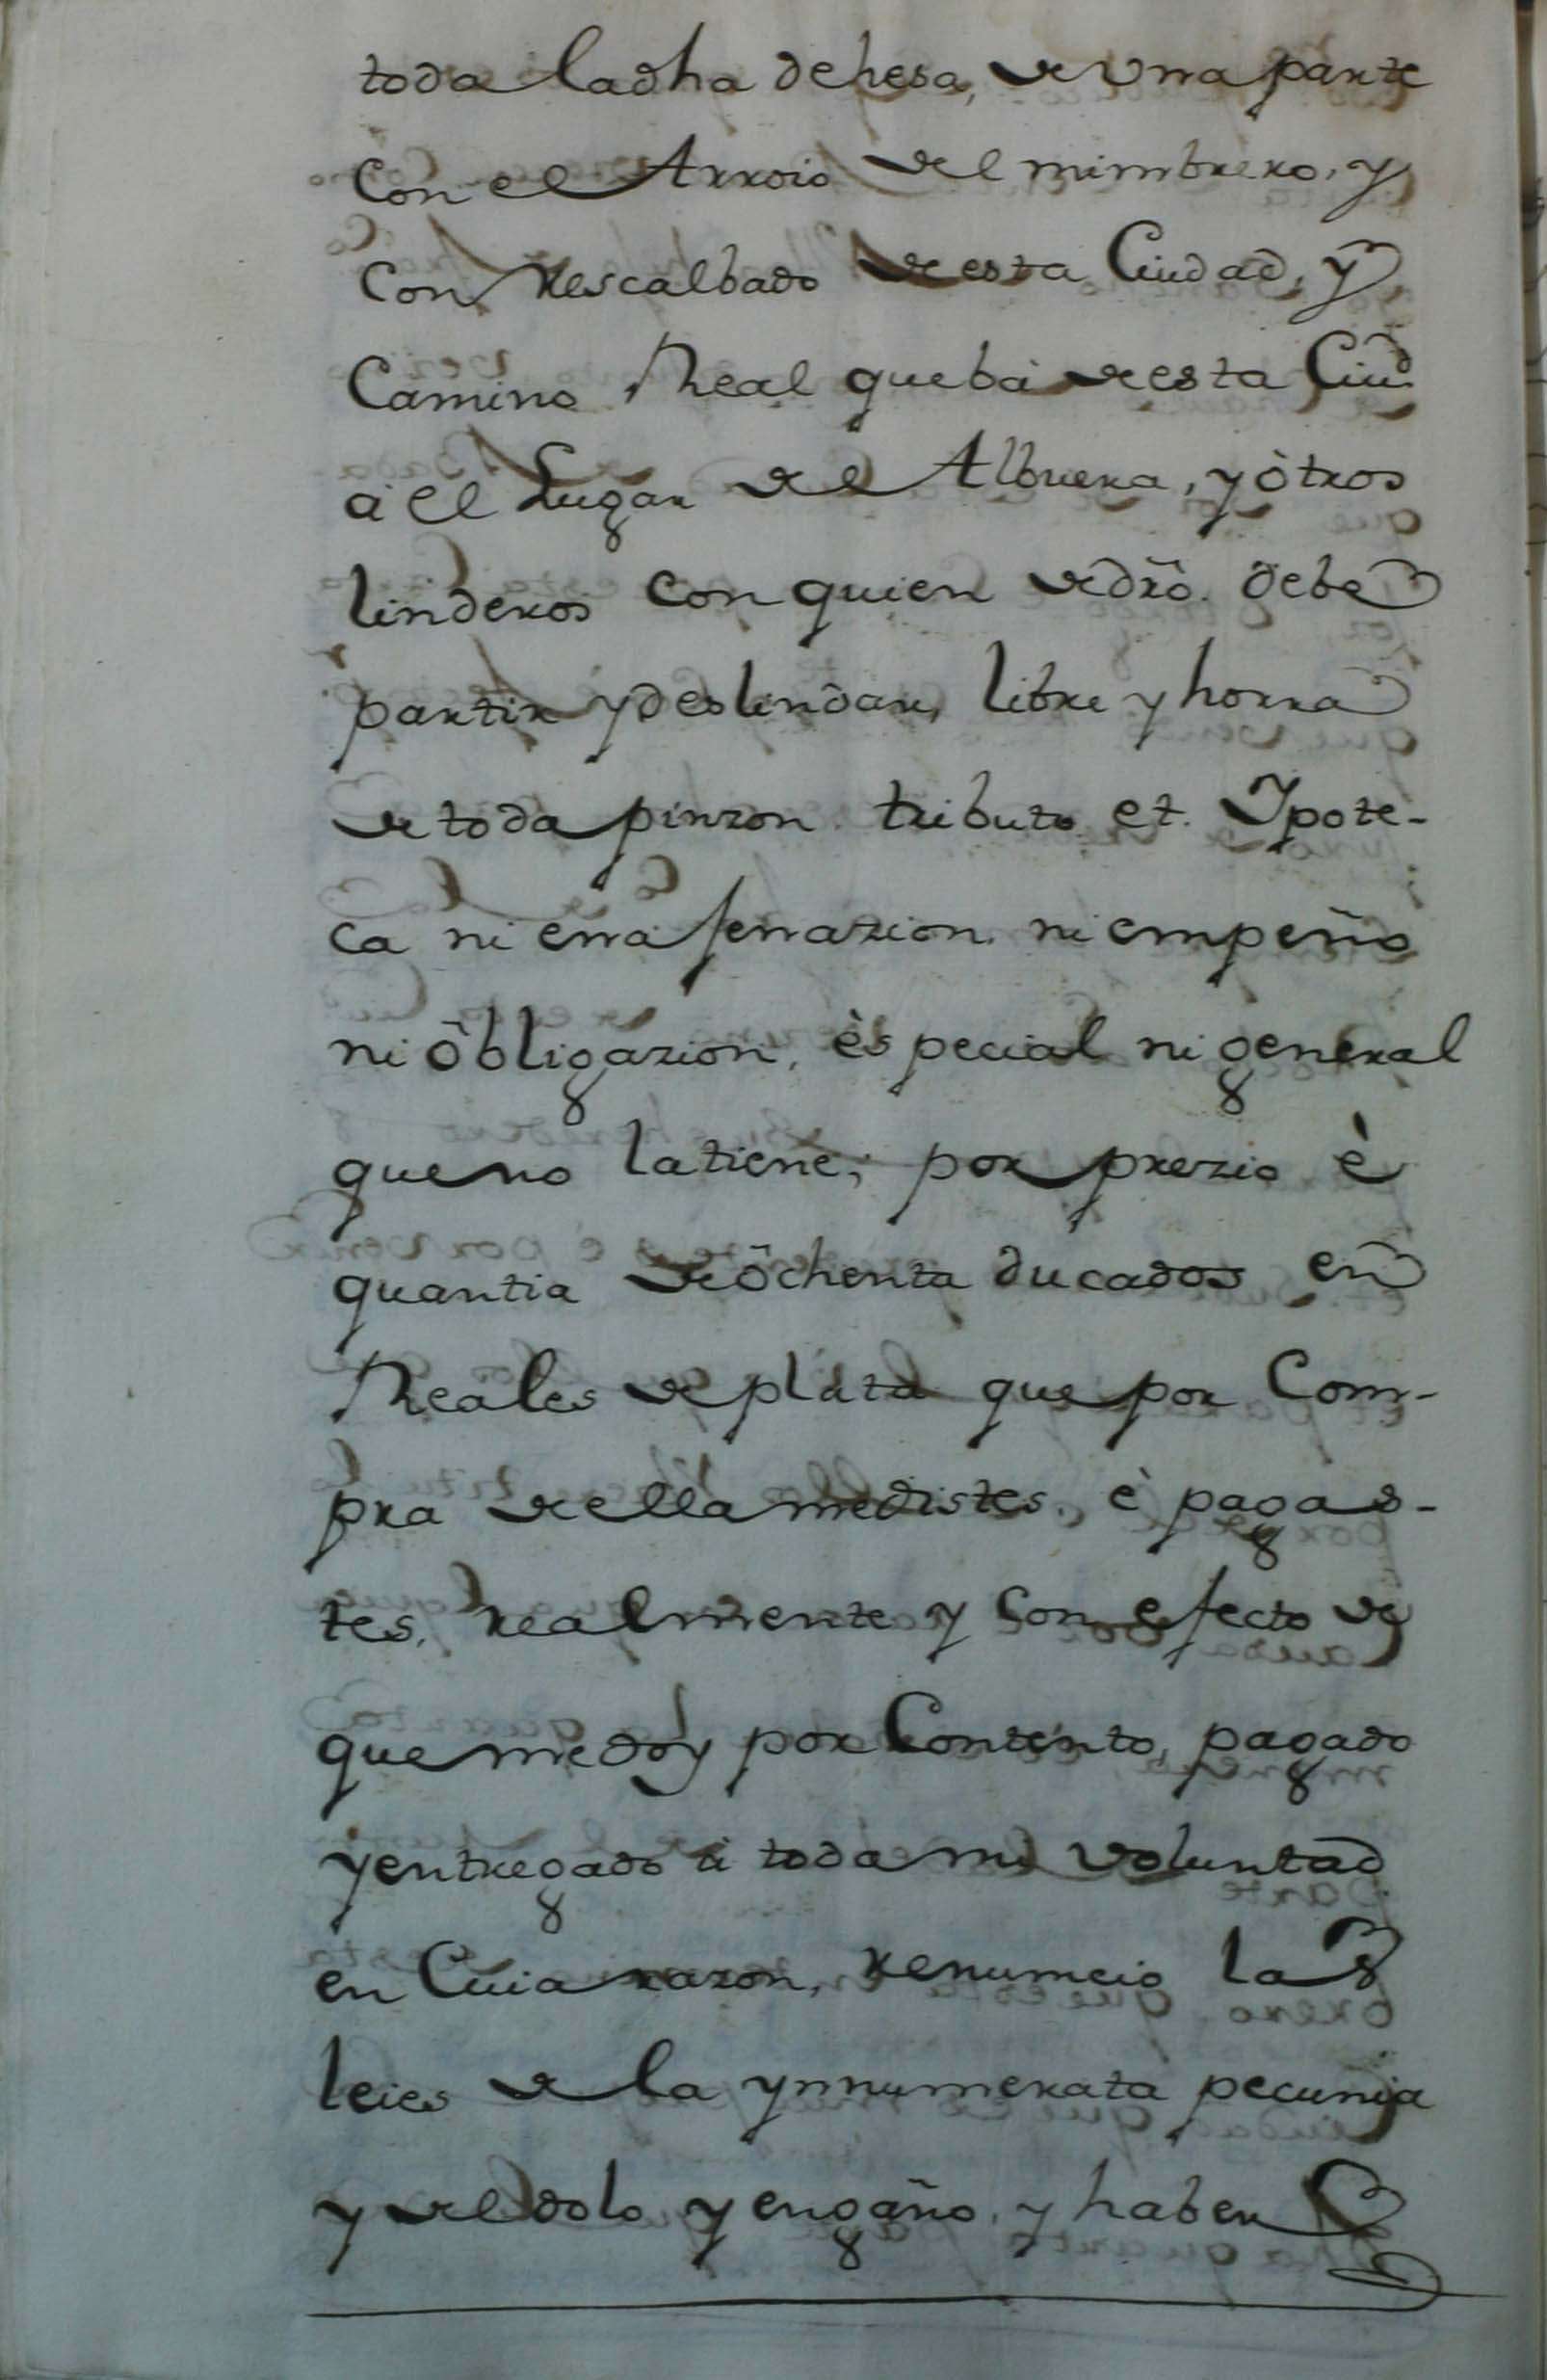 toda la dha dehesa, de vna parte
con el Arroio del mimbrero, y
con Rescalbado de esta Ciudad, y
Camino Real que bà de esta Ciud
à el Lugar de Albuera, y òtros
linderos con quien de dr̃o. debe
partir y deslindar, libre y horra
de toda pinzon tributo et. Ypote-
ca ni enajenazion, ni empeño
ni òbligazion, èspecial ni general
que no la tiene; por prezio è
quantia de òchenta ducados en
Reales de plata que por Com-
pra de ella me distes, è pagas-
tes, realmente y con efecto de
que me doy por Contento, pagado
y entregado à toda mi voluntad
en Cuia razon, renumcio las
leies de la ynnumerata pecunia
y del dolo y engaño, y haber